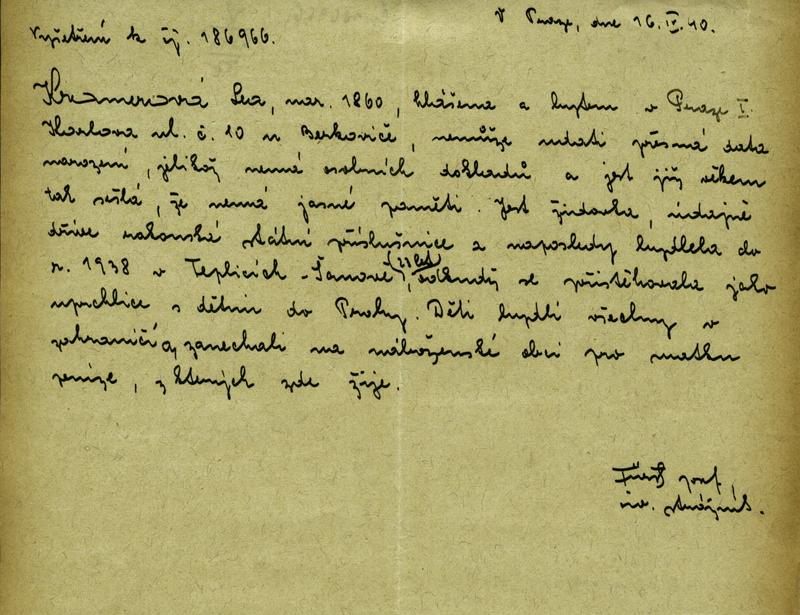 V Praze, dne 16.IV.40.
Vyšetření k čj. 186966.
Kramerová Lea, nar. 1860, hlášena a bytem v Praze I.
Karlova ul. č. 10 u Berkoviče, nemůže udati přesná data
narození, jelikož nemá osobních dokladů a jest již věkem
tak sešlá, že nemá jasné paměti. Jest židovka, údajně
dříve rakouská státní příslušnice a naposledy bydlela do
r. 1938 v Teplicích-Šanově (22 let), odkudž se přistěhovala jako
uprchlice s dětmi do Prahy. Děti bydlí všechny v
zahraničí a zanechali na náboženské obci pro matku
peníze, z kterých zde žije.
Josef,
strážník.